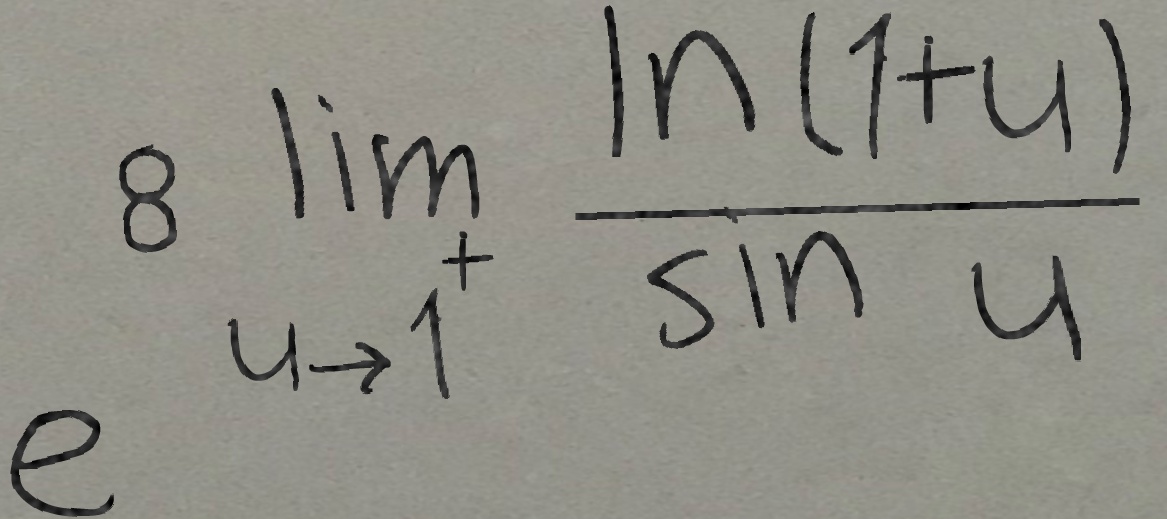 e^{8 \lim_{u \to 1^+} \frac{\ln(1+u)}{\sin u}}